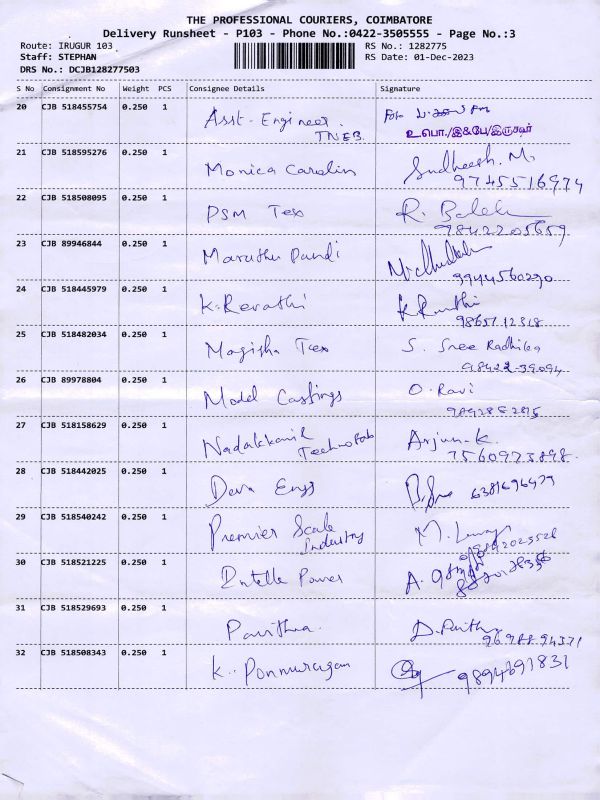 THE PROFESSIONAL COURIERS, COIMBATORE
Delivery Runsheet - P103 - Phone No.:0422-3505555 - Page No.:3
Route: IRUGUR 103 RS No.: 1282775
Staff: STEPHAN RS Date: 01-Dec-2023
DRS No.: DCJB128277503
S No Consignment No Weight PCS Consignee Details Signature
20 CJB 518455754 0.250 1 Asst-Engineer For
TNEB. உ.பொ./இ&பே/இருகூர்
21 CJB 518595276 0.250 1 Monica Carolin Sudheesh. M.
9745516974
22 CJB 518508095 0.250 1 PSM Tex R.
9842205659
23 CJB 89946844 0.250 1 Maruthu Pandi
9944560290
24 CJB 518445979 0.250 1 K. Revathi
9865712318
25 CJB 518482034 0.250 1 Magisha Tex S. Sree Radhika
98422-39094
26 CJB 89978804 0.250 1 Model Castings O. Ravi
27 CJB 518158629 0.250 1 Nadakkavil Arjun.K.
Technofab 7560973898.
28 CJB 518442025 0.250 1 Deva Engg 6381696479
29 CJB 518540242 0.250 1 Premier Scale M.
Industry
30 CJB 518521225 0.250 1 Intelle Power A.
31 CJB 518529693 0.250 1 Pavithra. D.
96988 94371
32 CJB 518508343 0.250 1 K. Ponmurugan 9894691831